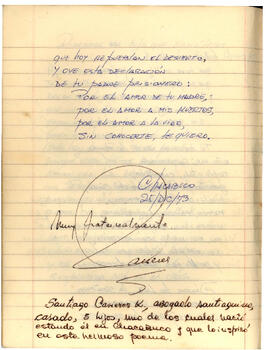 QUE HOY
EL DESIERTO,
Y OYE ESTA DECLARACIÓN
DE TU PADRE PRISIONERO:
POR EL AMOR DE TU MADRE,
POR EL AMOR A MIS MUERTOS,
POR EL AMOR A LA VIDA,
SIN CONOCERTE, TE QUIERO.
CHACABUCO
25/DIC/73
Muy fraternalmente
Santiago Cavieres K., abogado santiaguino,
casado, 5 hijos, uno de los cuales nació
estando él en Chacabuco y que lo inspiró
en este hermoso poema.